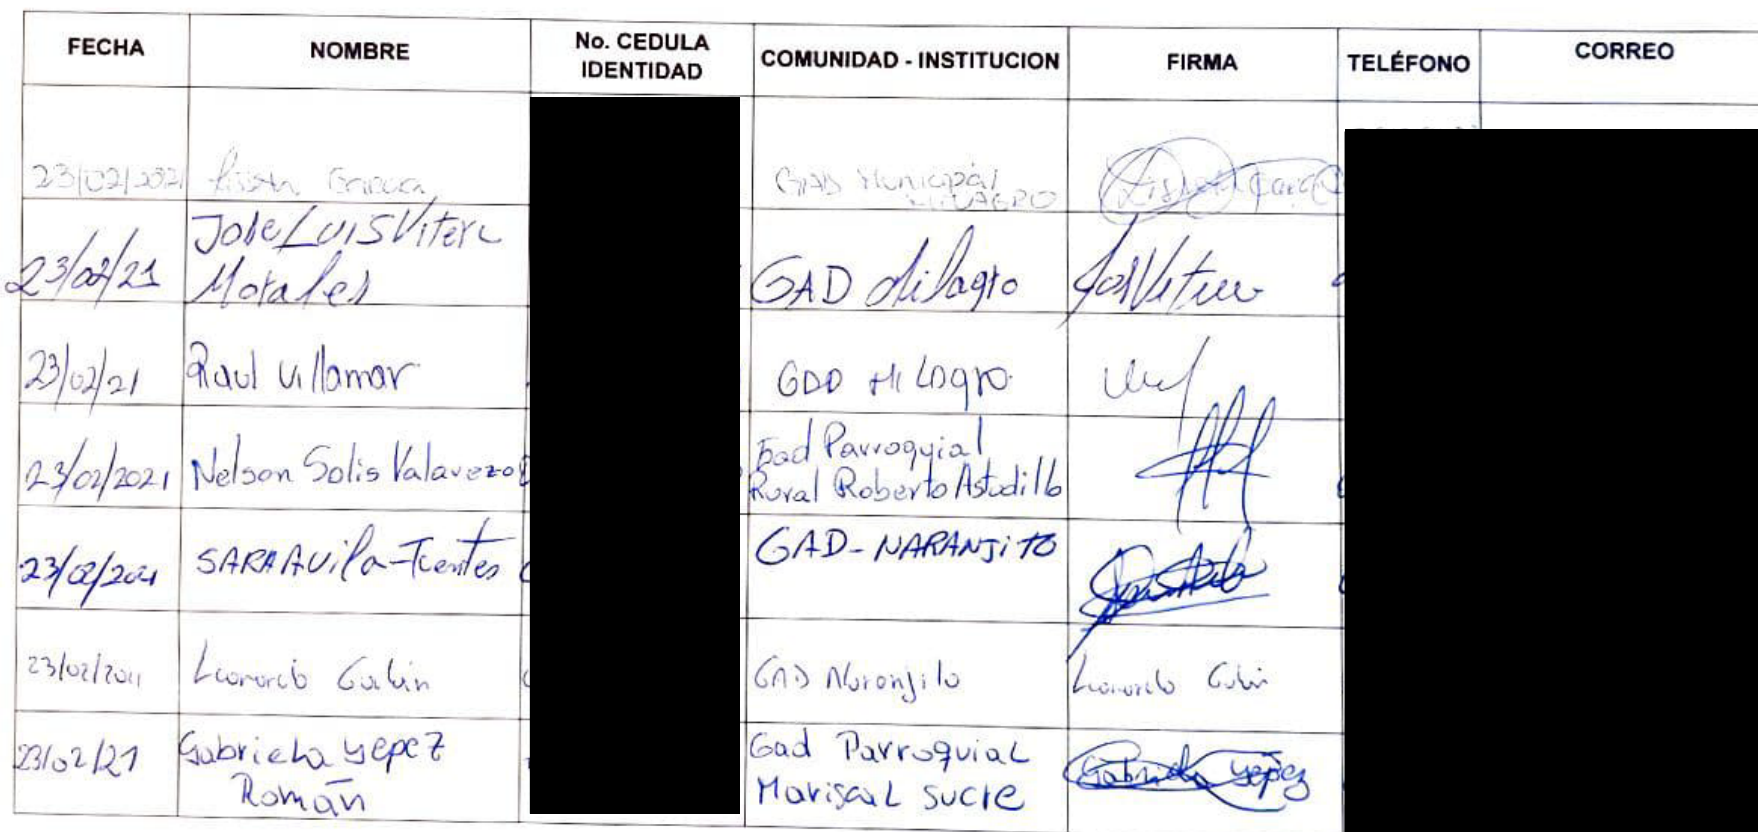 FECHA NOMBRE No. CEDULA IDENTIDAD COMUNIDAD - INSTITUCION FIRMA TELÉFONO CORREO
23/02/2021 García GAD Municipal MILAGRO
23/02/21 Jose Luis Viteri Morales GAD Milagro
23/02/21 Raul Villamar GAD Milagro
23/02/2021 Nelson Solis Valarezo Gad Parroquial Rural Roberto Astudillo
23/02/2021 SARA AVila Fuentes GAD-NARANJITO
23/02/2021 Leonardo GAD Naranjito Leonardo
23/02/21 Gabriela Yepez Román Gad Parroquial Mariscal Sucre Gabriela Yépez